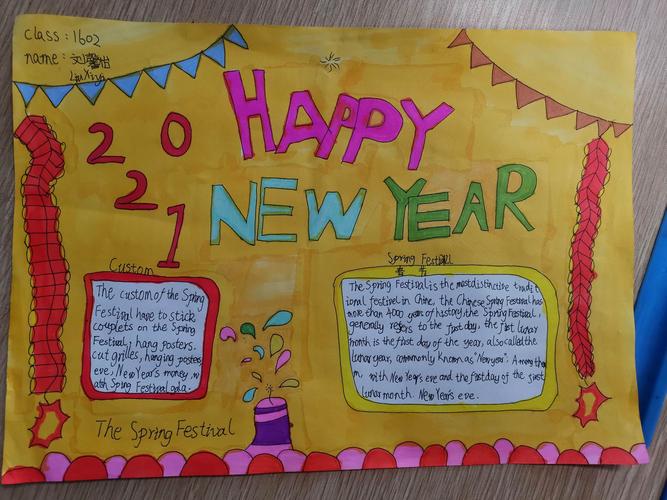 class : 1602
name : 刘馨怡
Liu Xinyi
HAPPY
NEW YEAR
2 0
2
1
Custom
The custom of the Spring
Festival have to stick
couplets on the Spring
Festival, hang posters.
cut grilles, hanging posters
eve, New Year's money, w
atch Spring Festival gala.
Spring Festival
春 节
The Spring Festival is the most distinctive tradit
ional festival in Chine, the Chinese Spring Festival has
more than 4000 years of history, the Spring Festival,
generally refers to the first day, the first lunar
month is the first day of the year, also called the
lunar year, commonly known as "New year". Among the
m, with New Year's eve and the first day of the first
lunar month. New Year's eve.
The Spring Festival